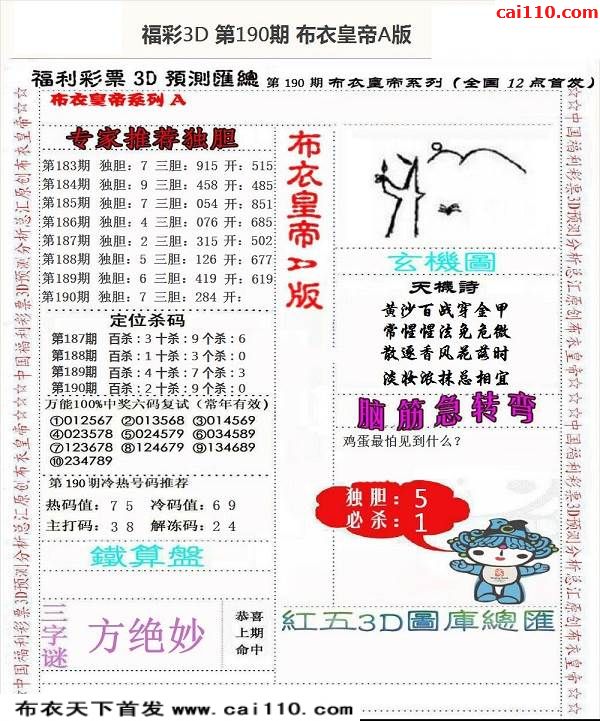 cai110.com
福彩3D 第190期 布衣皇帝A版
福利彩票 3D 預測匯總 第 190 期 布衣皇帝系列 (全国 12 点首发)
布衣皇帝系列 A
专家推荐独胆
第183期 独胆: 7 三胆: 915 开: 515
第184期 独胆: 9 三胆: 458 开: 485
第185期 独胆: 7 三胆: 054 开: 851
第186期 独胆: 4 三胆: 076 开: 685
第187期 独胆: 2 三胆: 315 开: 502
第188期 独胆: 5 三胆: 126 开: 677
第189期 独胆: 6 三胆: 419 开: 619
第190期 独胆: 7 三胆: 284 开:
定位杀码
第187期 百杀: 3 十杀: 9 个杀: 6
第188期 百杀: 1 十杀: 3 个杀: 0
第189期 百杀: 4 十杀: 7 个杀: 3
第190期 百杀: 2 十杀: 9 个杀: 0
万能100%中奖六码复试 (常年有效)
①012567 ②013568 ③014569
④023578 ⑤024579 ⑥034589
⑦123678 ⑧124679 ⑨134689
⑩234789
第190期冷热号码推荐
热码值: 7 5 冷码值: 6 9
主打码: 3 8 解冻码: 2 4
鐵算盤
三字谜
方绝妙
恭喜
上期
命中
布衣皇帝A版
玄機圖
天機詩
黄沙百战穿金甲
常惺惺法免危微
散逐香风花落时
淡妆浓抹总相宜
脑筋急转弯
鸡蛋最怕见到什么?
独胆: 5
必杀: 1
紅五3D圖庫總匯
☆☆中国福利彩票3D预测分析总汇原创布衣皇帝☆☆
☆☆中国福利彩票3D预测分析总汇原创布衣皇帝☆☆
布衣天下首发 www.cai110.com